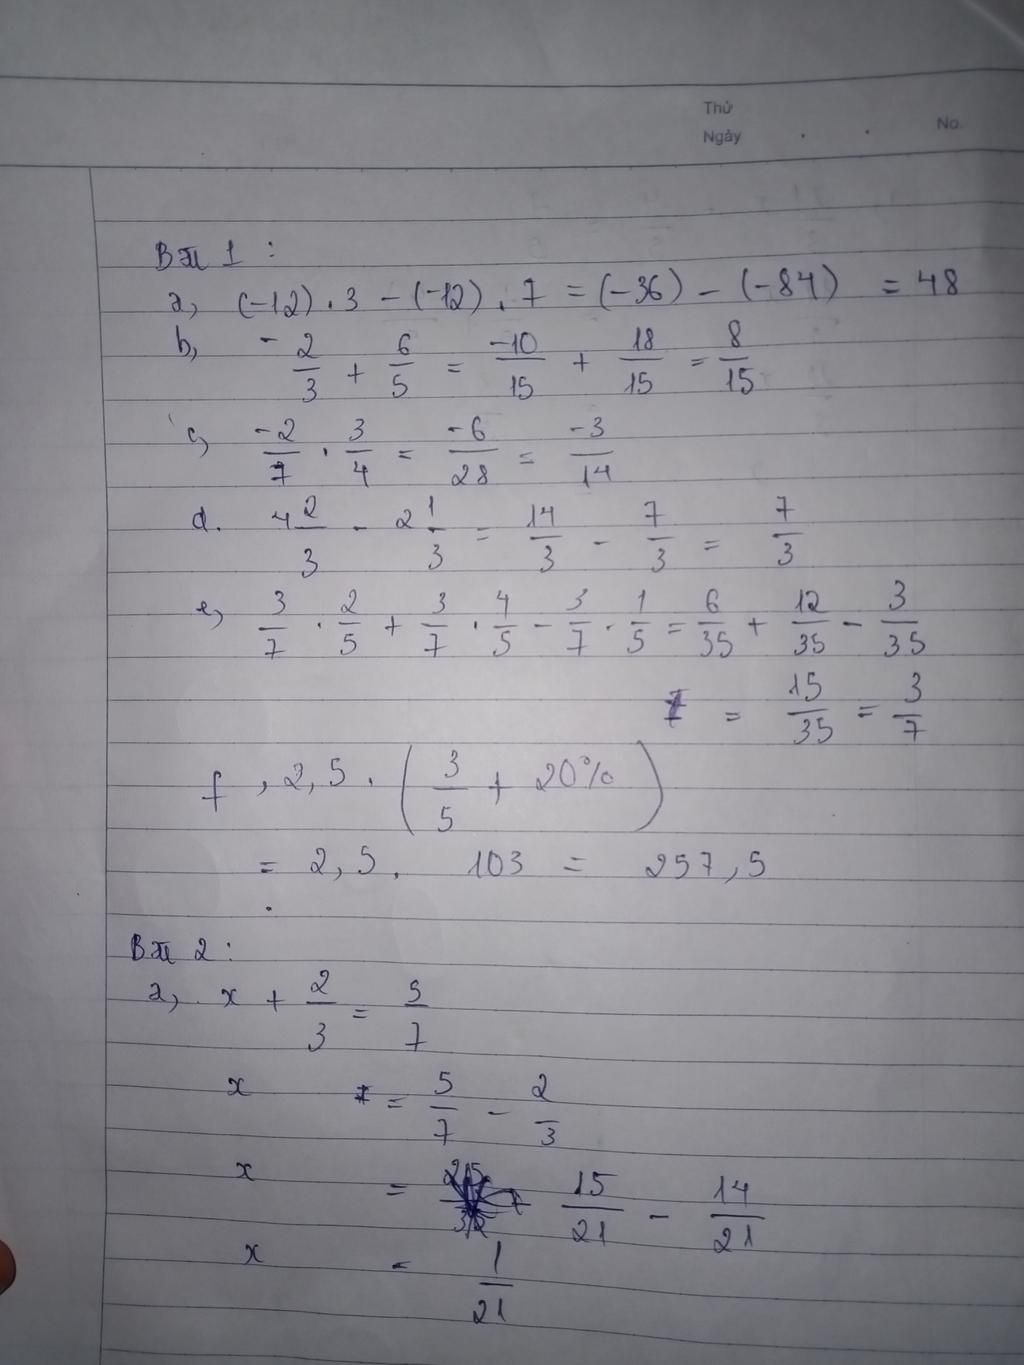 Thứ
Ngày . . No.
Bài 1 :
a, (-12) . 3 - (-12) . 7 = (-36) - (-84) = 48
b, - 2/3 + 6/5 = -10/15 + 18/15 = 8/15
c, -2/7 . 3/4 = -6/28 = -3/14
d. 4 2/3 - 2 1/3 = 14/3 - 7/3 = 7/3
e, 3/7 . 2/5 + 3/7 . 4/5 - 3/7 . 1/5 = 6/35 + 12/35 - 3/35
= 15/35 = 3/7
f, 2,5 . ( 3/5 + 20% )
= 2,5 . 103 = 257,5
Bài 2 :
a, x + 2/3 = 5/7
x = 5/7 - 2/3
x = 15/21 - 14/21
x = 1/21